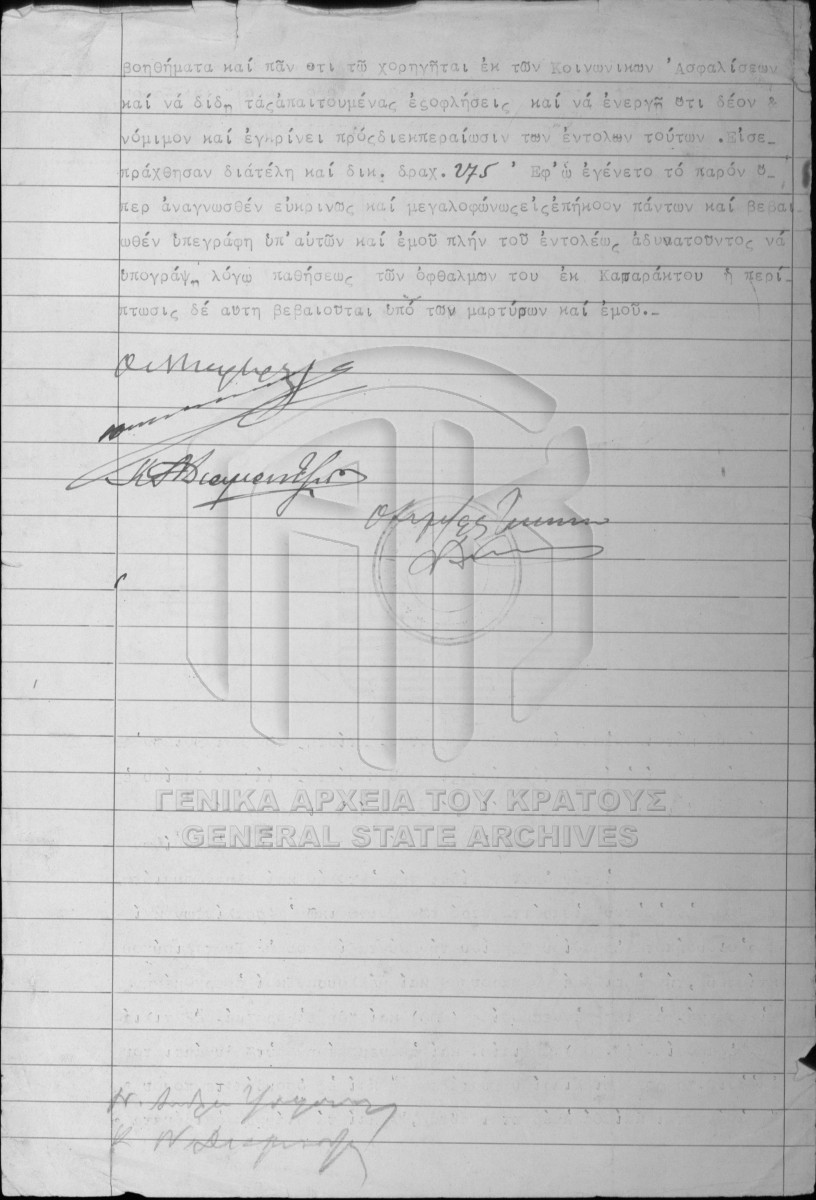 βοηθήματα καί πᾶν οτι τῶ χορηγῆται ἐκ τῶν Κοινωνικων Ἀσφαλίσεων
καί νά δίδῃ τάςἀπαιτουμένας ἐξοφλήσεις καί νά ἐνεργῆ οτι δέον &
νόμιμον καί ἐγκρίνει πρόςδιεκπεραίωσιν των ἐντολων τούτων .Εἰσε-
πράχθησαν διάτέλη καί δικ. δραχ. 275 Ἐφ'ὡ ἐγένετο τό παρόν ὅ-
περ ἀναγνωσθέν εὐκρινως καί μεγαλοφώνωςεἰςἐπήκοον πάντων καί βεβαι-
ωθέν ὑπεγράφη ὑπ'αὐτῶν καί ἐμοῦ πλήν τοῦ ἐντολέως ἀδυνατοῦντος νά
ὑπογράψῃ λόγω παθήσεως τῶν ὀφθαλμων του ἐκ Καταράκτου ἡ περί-
πτωσις δέ αυτη βεβαιοῦται ὑπό των μαρτύρων καί ἐμοῦ.-
Οι Μάρτυρες
ΓΕΝΙΚΑ ΑΡΧΕΙΑ ΤΟΥ ΚΡΑΤΟΥΣ
GENERAL STATE ARCHIVES